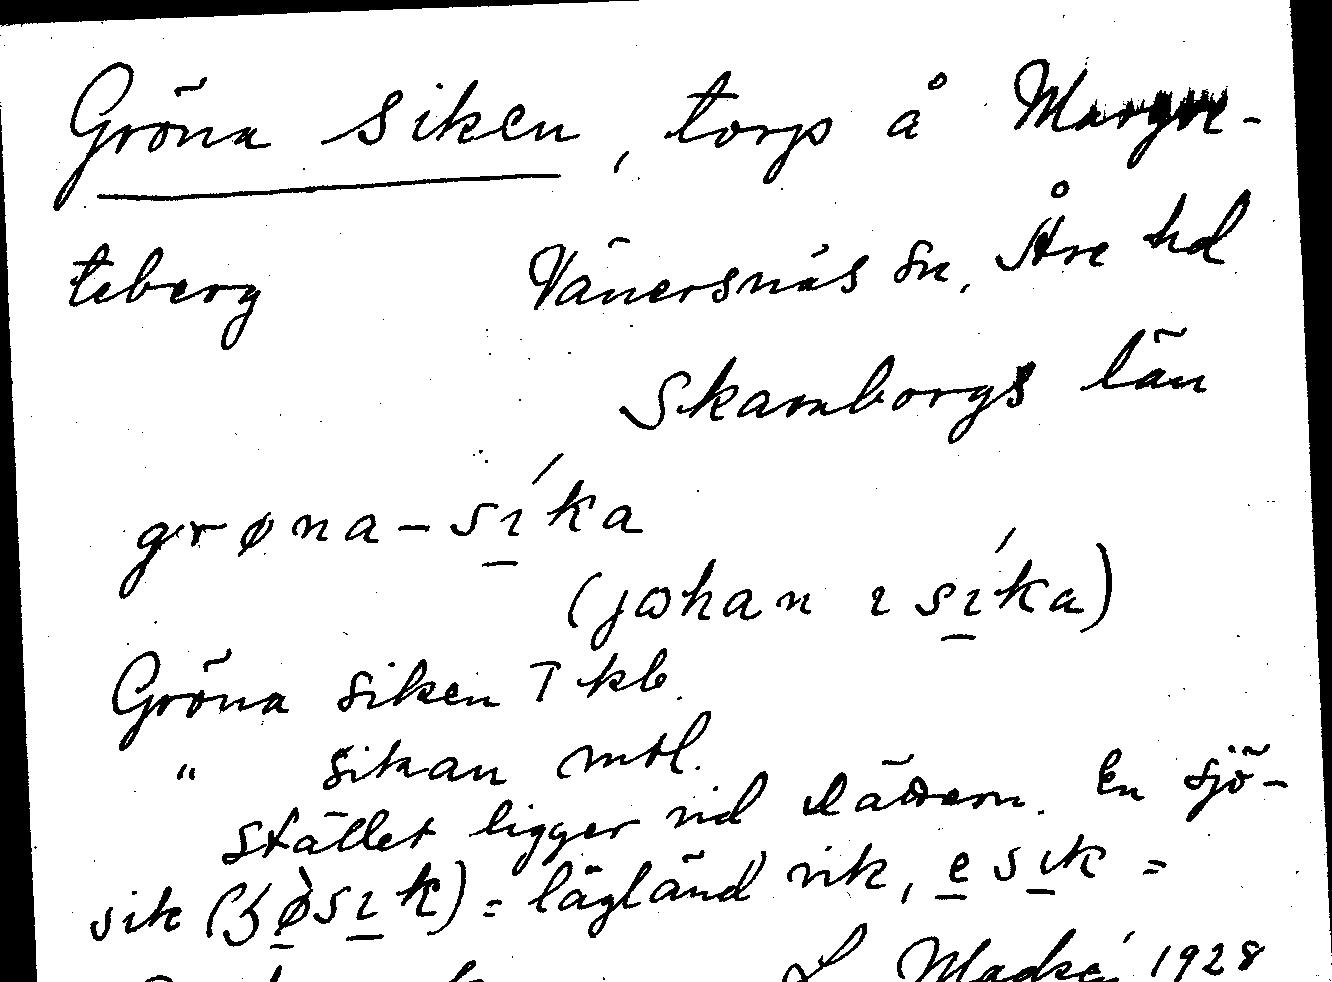 Gröna Siken, torp å Margre-
teberg Vänersnäs sn, Åse hd
Skaraborgs län
grøna-síka
(jωhan ı síka)
Gröna Siken T kb.
" Sikan mtl.
Stället ligger vid En sjö-
sik = lågländ vik, e sık =
Madsé 1928